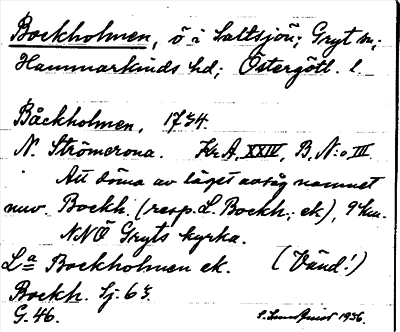 Bockholmen, ö i Saltsjön; Gryt sn;
Hammarkinds hd; Östergötl. l.
Båckholmen, 1734.
N. Strömcrona. Kr A. XXIV, B. N:o III.
Att döma av läget avsåg namnet
nuv. Bockh. (resp. L. Bockh. ek), 9 km.
NNÖ Gryts kyrka.
La Bockholmen ek. (Vänd!)
Bockh. Sj. 63.
G. 46. 1936.